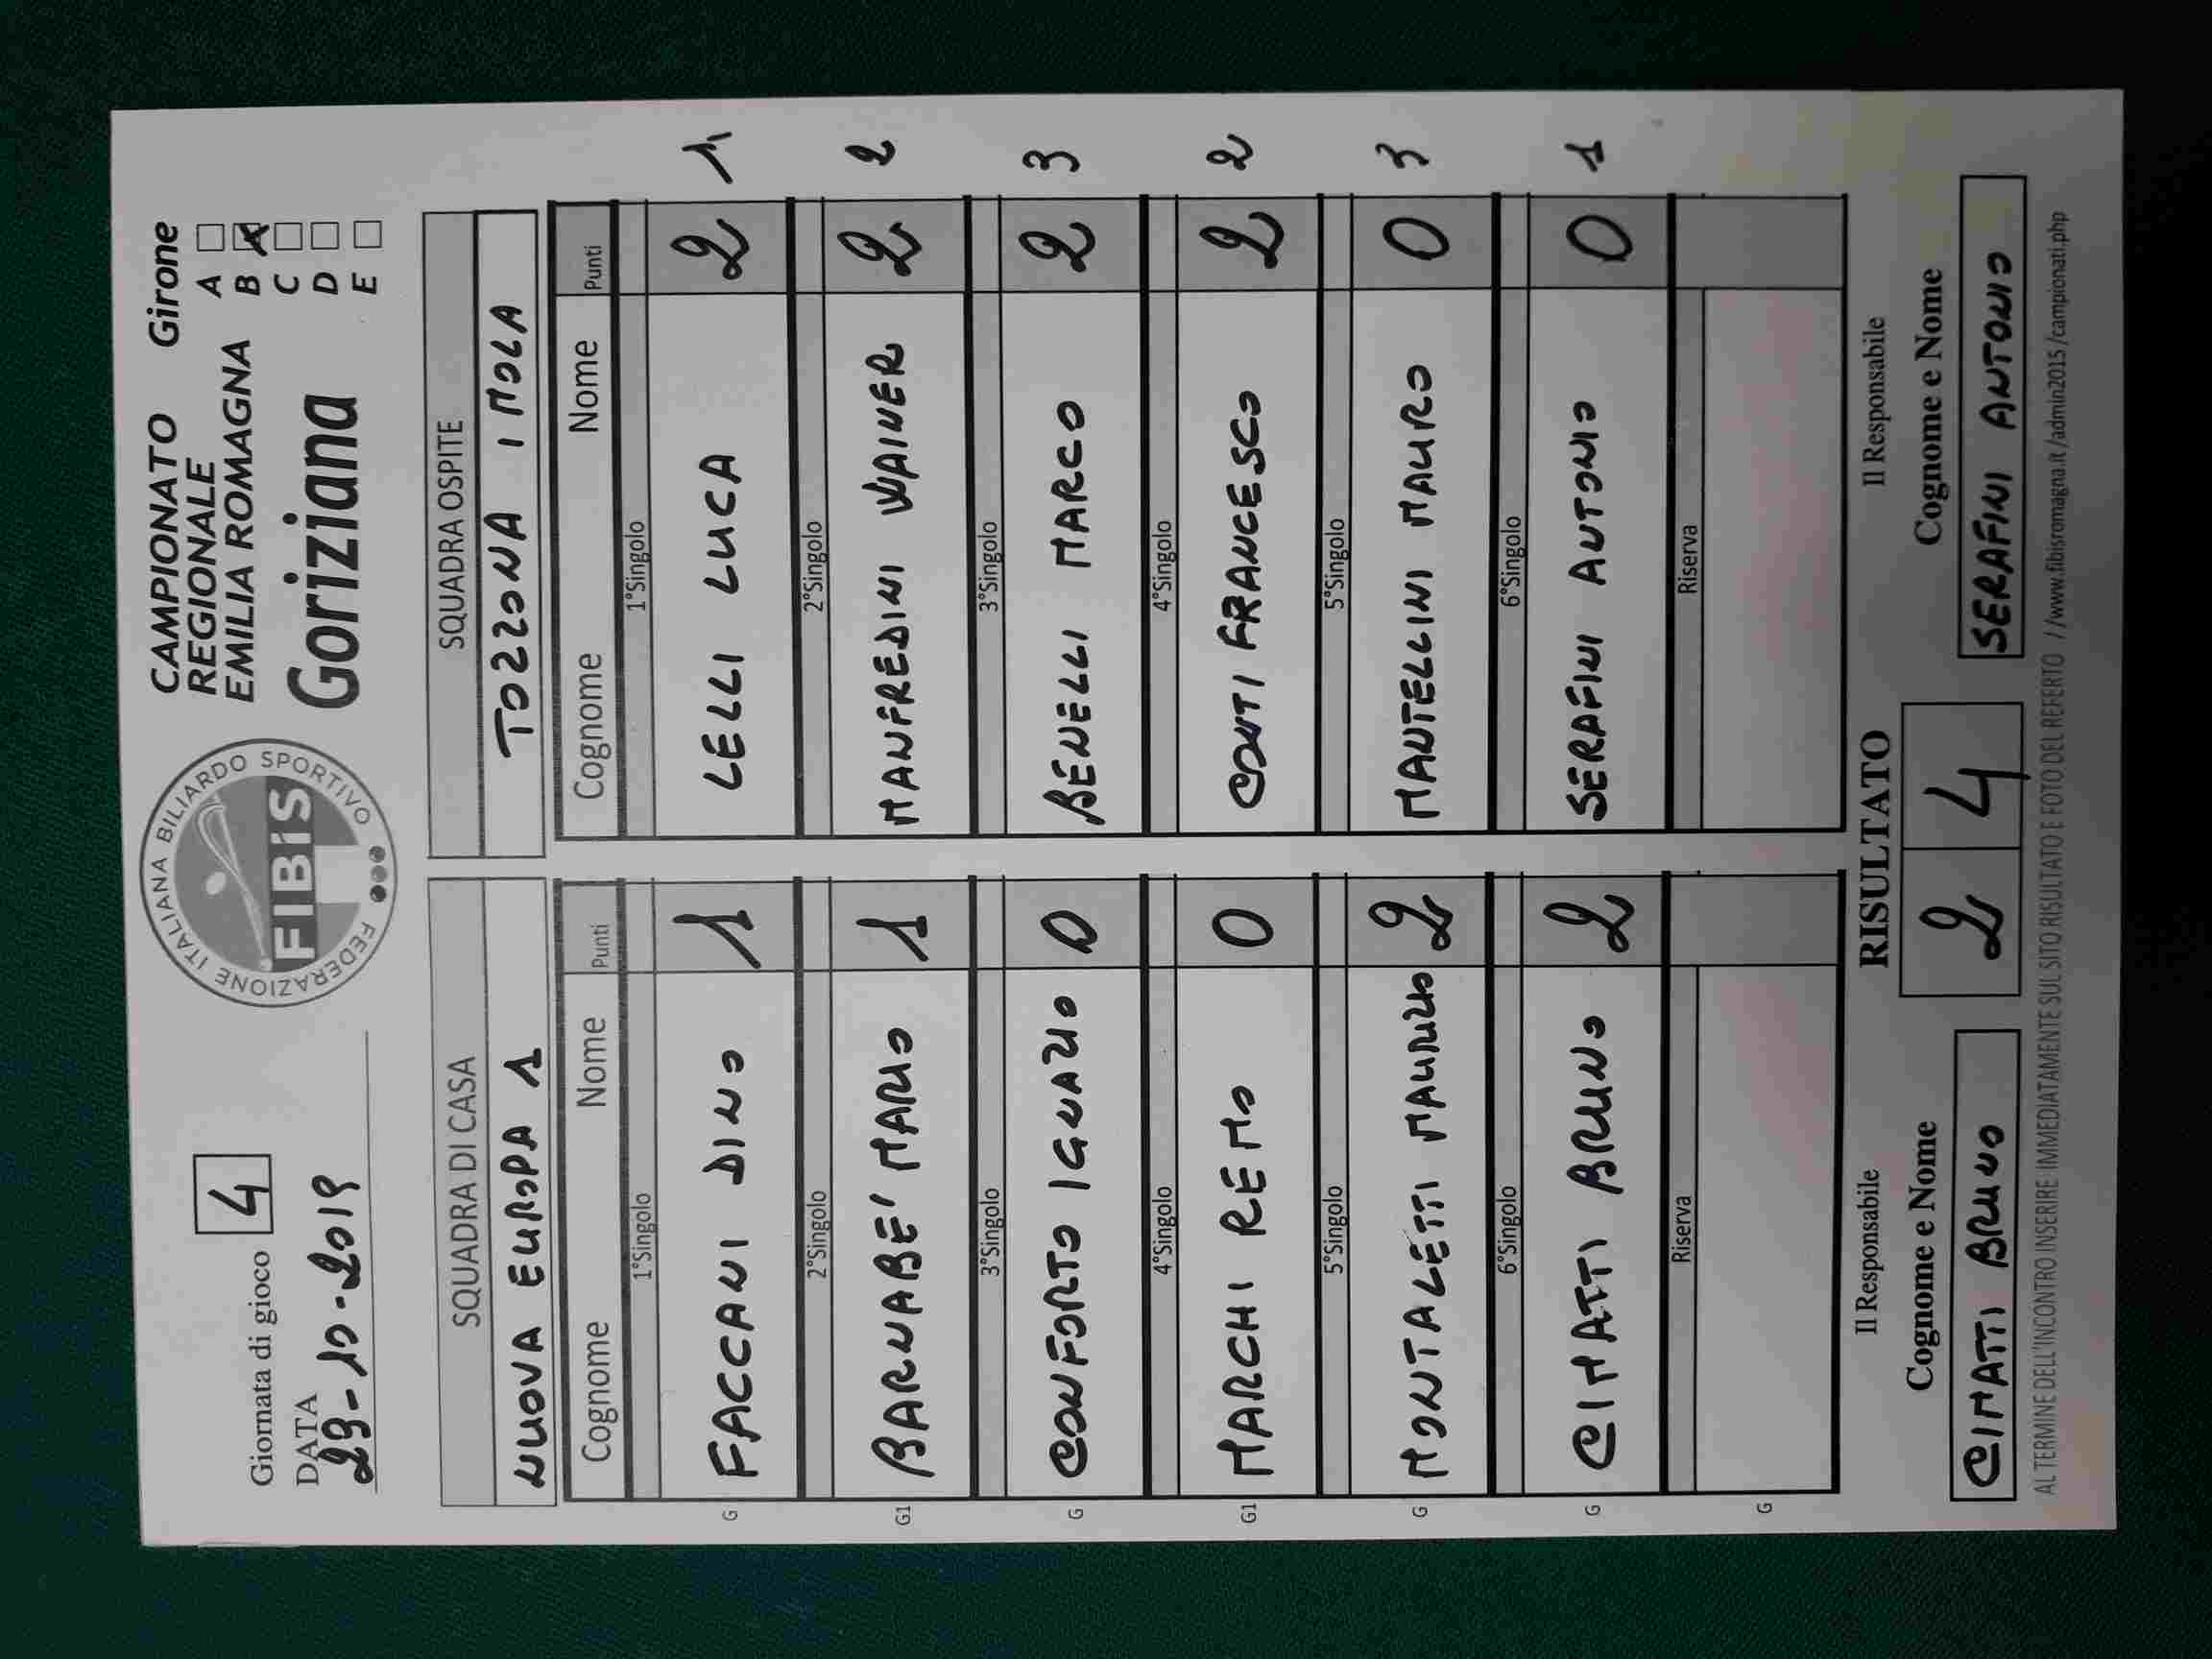 Giornata di gioco 4
DATA 29-10-2019
FEDERAZIONE ITALIANA BILIARDO SPORTIVO
FIBiS
CAMPIONATO
REGIONALE
EMILIA ROMAGNA
Goriziana
Girone
A
B
C
D
E
SQUADRA DI CASA SQUADRA OSPITE
NUOVA EUROPA 1 TOZZONA IMOLA
Cognome Nome Punti Cognome Nome Punti
1°Singolo 1°Singolo
G FACCANI DINO 1 LELLI LUCA 2 1
2°Singolo 2°Singolo
G1 BARNABE' MARIO 1 MANFREDINI WAINER 2 2
3°Singolo 3°Singolo
G CONFORTO IGNAZIO 0 BENELLI MARCO 2 3
4°Singolo 4°Singolo
G1 MARCHI REMO 0 CONTI FRANCESCO 2 2
5°Singolo 5°Singolo
G MONTALETTI MAURIZIO 2 MANTELLINI MAURO 0 3
6°Singolo 6°Singolo
G CIMATTI BRUNO 2 SERAFINI ANTONIO 0 1
Riserva Riserva
G
Il Responsabile RISULTATO Il Responsabile
Cognome e Nome 2 4 Cognome e Nome
CIMATTI BRUNO SERAFINI ANTONIO
AL TERMINE DELL'INCONTRO INSERIRE IMMEDIATAMENTE SUL SITO RISULTATO E FOTO DEL REFERTO //www.fibisromagna.it/admin2015/campionati.php